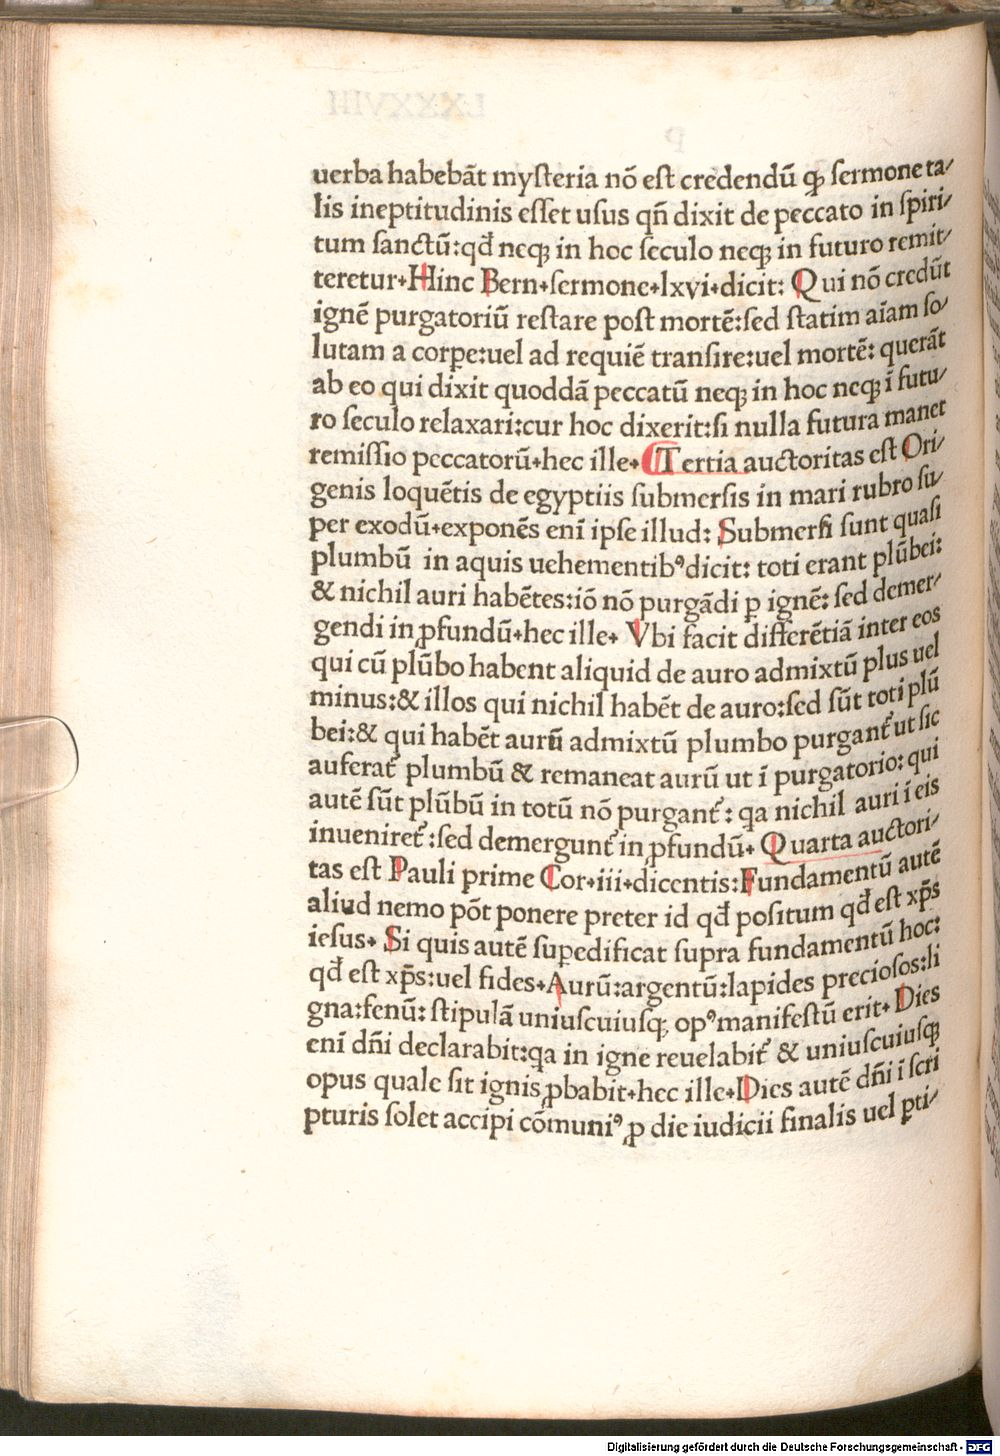 uerba habebāt mysteria nō est credendū ꝙ sermone ta/
lis ineptitudinis esset usus qñ dixit de peccato in spiri/
tum sanctū:qđ neqꝫ in hoc seculo neqꝫ in futuro remit/
teretur. Hinc Bern.sermone.lxvi.dicit: Qui nō credūt
ignē purgatoriū restare post mortē:sed statim aīam so/
lutam a corpe:uel ad requiē transire:uel mortē: querāt
ab eo qui dixit quoddā peccatū neqꝫ in hoc neqꝫ ī futu/
ro seculo relaxari:cur hoc dixerit:si nulla futura manet
remissio peccatorū.hec ille. Tertia auctoritas est Ori/
genis loquētis de egyptiis submersis in mari rubro su/
per exodū.exponēs enī ipse illud: Submersi sunt quasi
plumbū in aquis uehementibꝰ dicit: toti erant plūbei:
& nichil auri habētes:iō nō purgādi ꝑ ignē: sed demer/
gendi in ꝓfundū.hec ille. Vbi facit differētiā inter eos
qui cū plūbo habent aliquid de auro admixtū plus uel
minus:& illos qui nichil habēt de auro:sed sūt toti plū
bei:& qui habēt aurū admixtū plumbo purgant᷑ ut sic
auferat᷑ plumbū & remaneat aurū ut ī purgatorio: qui
autē sūt plūbū in totū nō purgant᷑: qa nichil auri ī eis
inueniret᷑:sed demergunt᷑ in ꝓfundū. Quarta auctori/
tas est Pauli prime Cor.iii.dicentis:Fundamentū autē
aliud nemo pōt ponere preter id qđ positum qđ est xp̄s
iesus. Si quis autē suꝑedificat supra fundamentū hoc:
qđ est xp̄s:uel fides.Aurū:argentū:lapides preciosos:li
gna:fenū: stipulā uniuscuiusqꝫ opꝰ manifestū erit. Dies
enī dñi declarabit:qa in igne reuelabit᷑ & uniuscuiusqꝫ
opus quale sit ignis ꝓbabit.hec ille.Dies autē dñi ī scri
pturis solet accipi cōmuniꝰ ꝓ die iudicii finalis uel ꝑti/
Digitalisierung gefördert durch die Deutsche Forschungsgemeinschaft - DFG